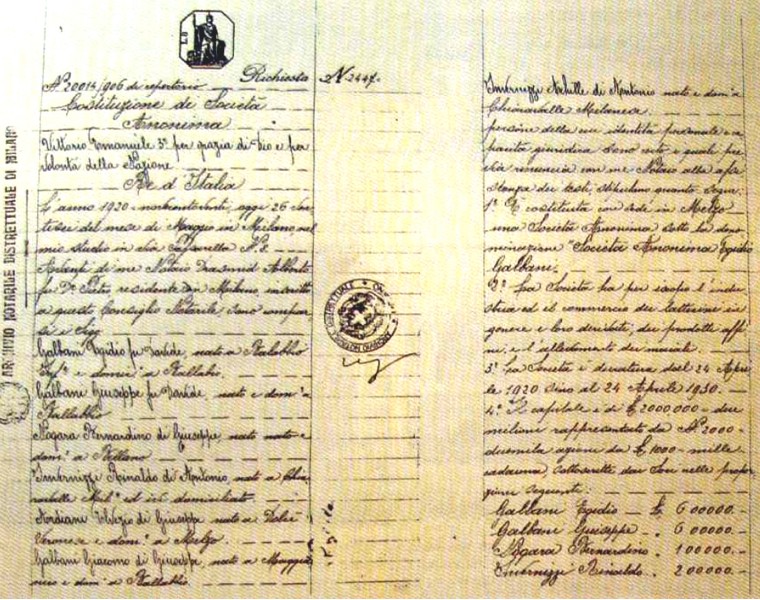 ARCHIVIO NOTARILE DISTRETTUALE DI MILANO
Nº 20014/906 di repertorio Richiesta N. 2447.
Costituzione di Società
Anonima
Vittorio Emanuele 3º per grazia di Dio e per
volontà della Nazione
Re d'Italia
L'anno 1920 - novecentoventi, oggi 26 ven
tisei del mese di Maggio in Milano, nel
mio studio in via N. 8.
Avanti di me Notaio Alberto
fu Dr. Pietro residente in Milano iscritto
a questo Consiglio Notarile sono compar
si i Sig.
Galbani Egidio fu Davide, nato a Ballabio
Inf.e e domic. a Ballabio.
Galbani Giuseppe fu Davide, nato e dom. a
Ballabio
Nogara Bernardino di Giuseppe, nato e
dom. a Bellano
Invernizzi Rinaldo di Antonio, nato a Chia
ravalle Mil. ed ivi domiciliato.
di Giuseppe nato a Dolcè
Verona e dom. a Melzo.
Galbani Giacomo di Giuseppe, nato a Maggia
nico e dom. a Ballabio
Invernizzi Achille di Antonio nato e dom. a
Chiaravalle Milanese.
persone della cui identità personale e ca
pacità giuridica sono certo e quali pre
via rinuncia con me Notaio alla assi
stenza dei testi, stipulano quanto segue:
1.º È costituita con sede in Melzo
una Società Anonima sotto la deno
minazione "Società Anonima Egidio
Galbani.
2.º La Società ha per scopo l'indu
stria ed il commercio dei latticini in
genere e loro derivati, dei prodotti affi
ni, e l'allevamento dei maiali.
3.º La Società è duratura dal 24 Apri
le 1920 sino al 24 Aprile 1950.
4.º Il capitale è di £ 2000.000 - due
milioni rappresentato da Nº 2000 -
duemila azioni da £ 1000 - mille
cadauna, sottoscritte dai Soci nelle propor
zioni seguenti:
Galbani Egidio — £. 600000.-
Galbani Giuseppe . 600000.-
Nogara Bernardino . 100000.-
Invernizzi Rinaldo . 200000.-